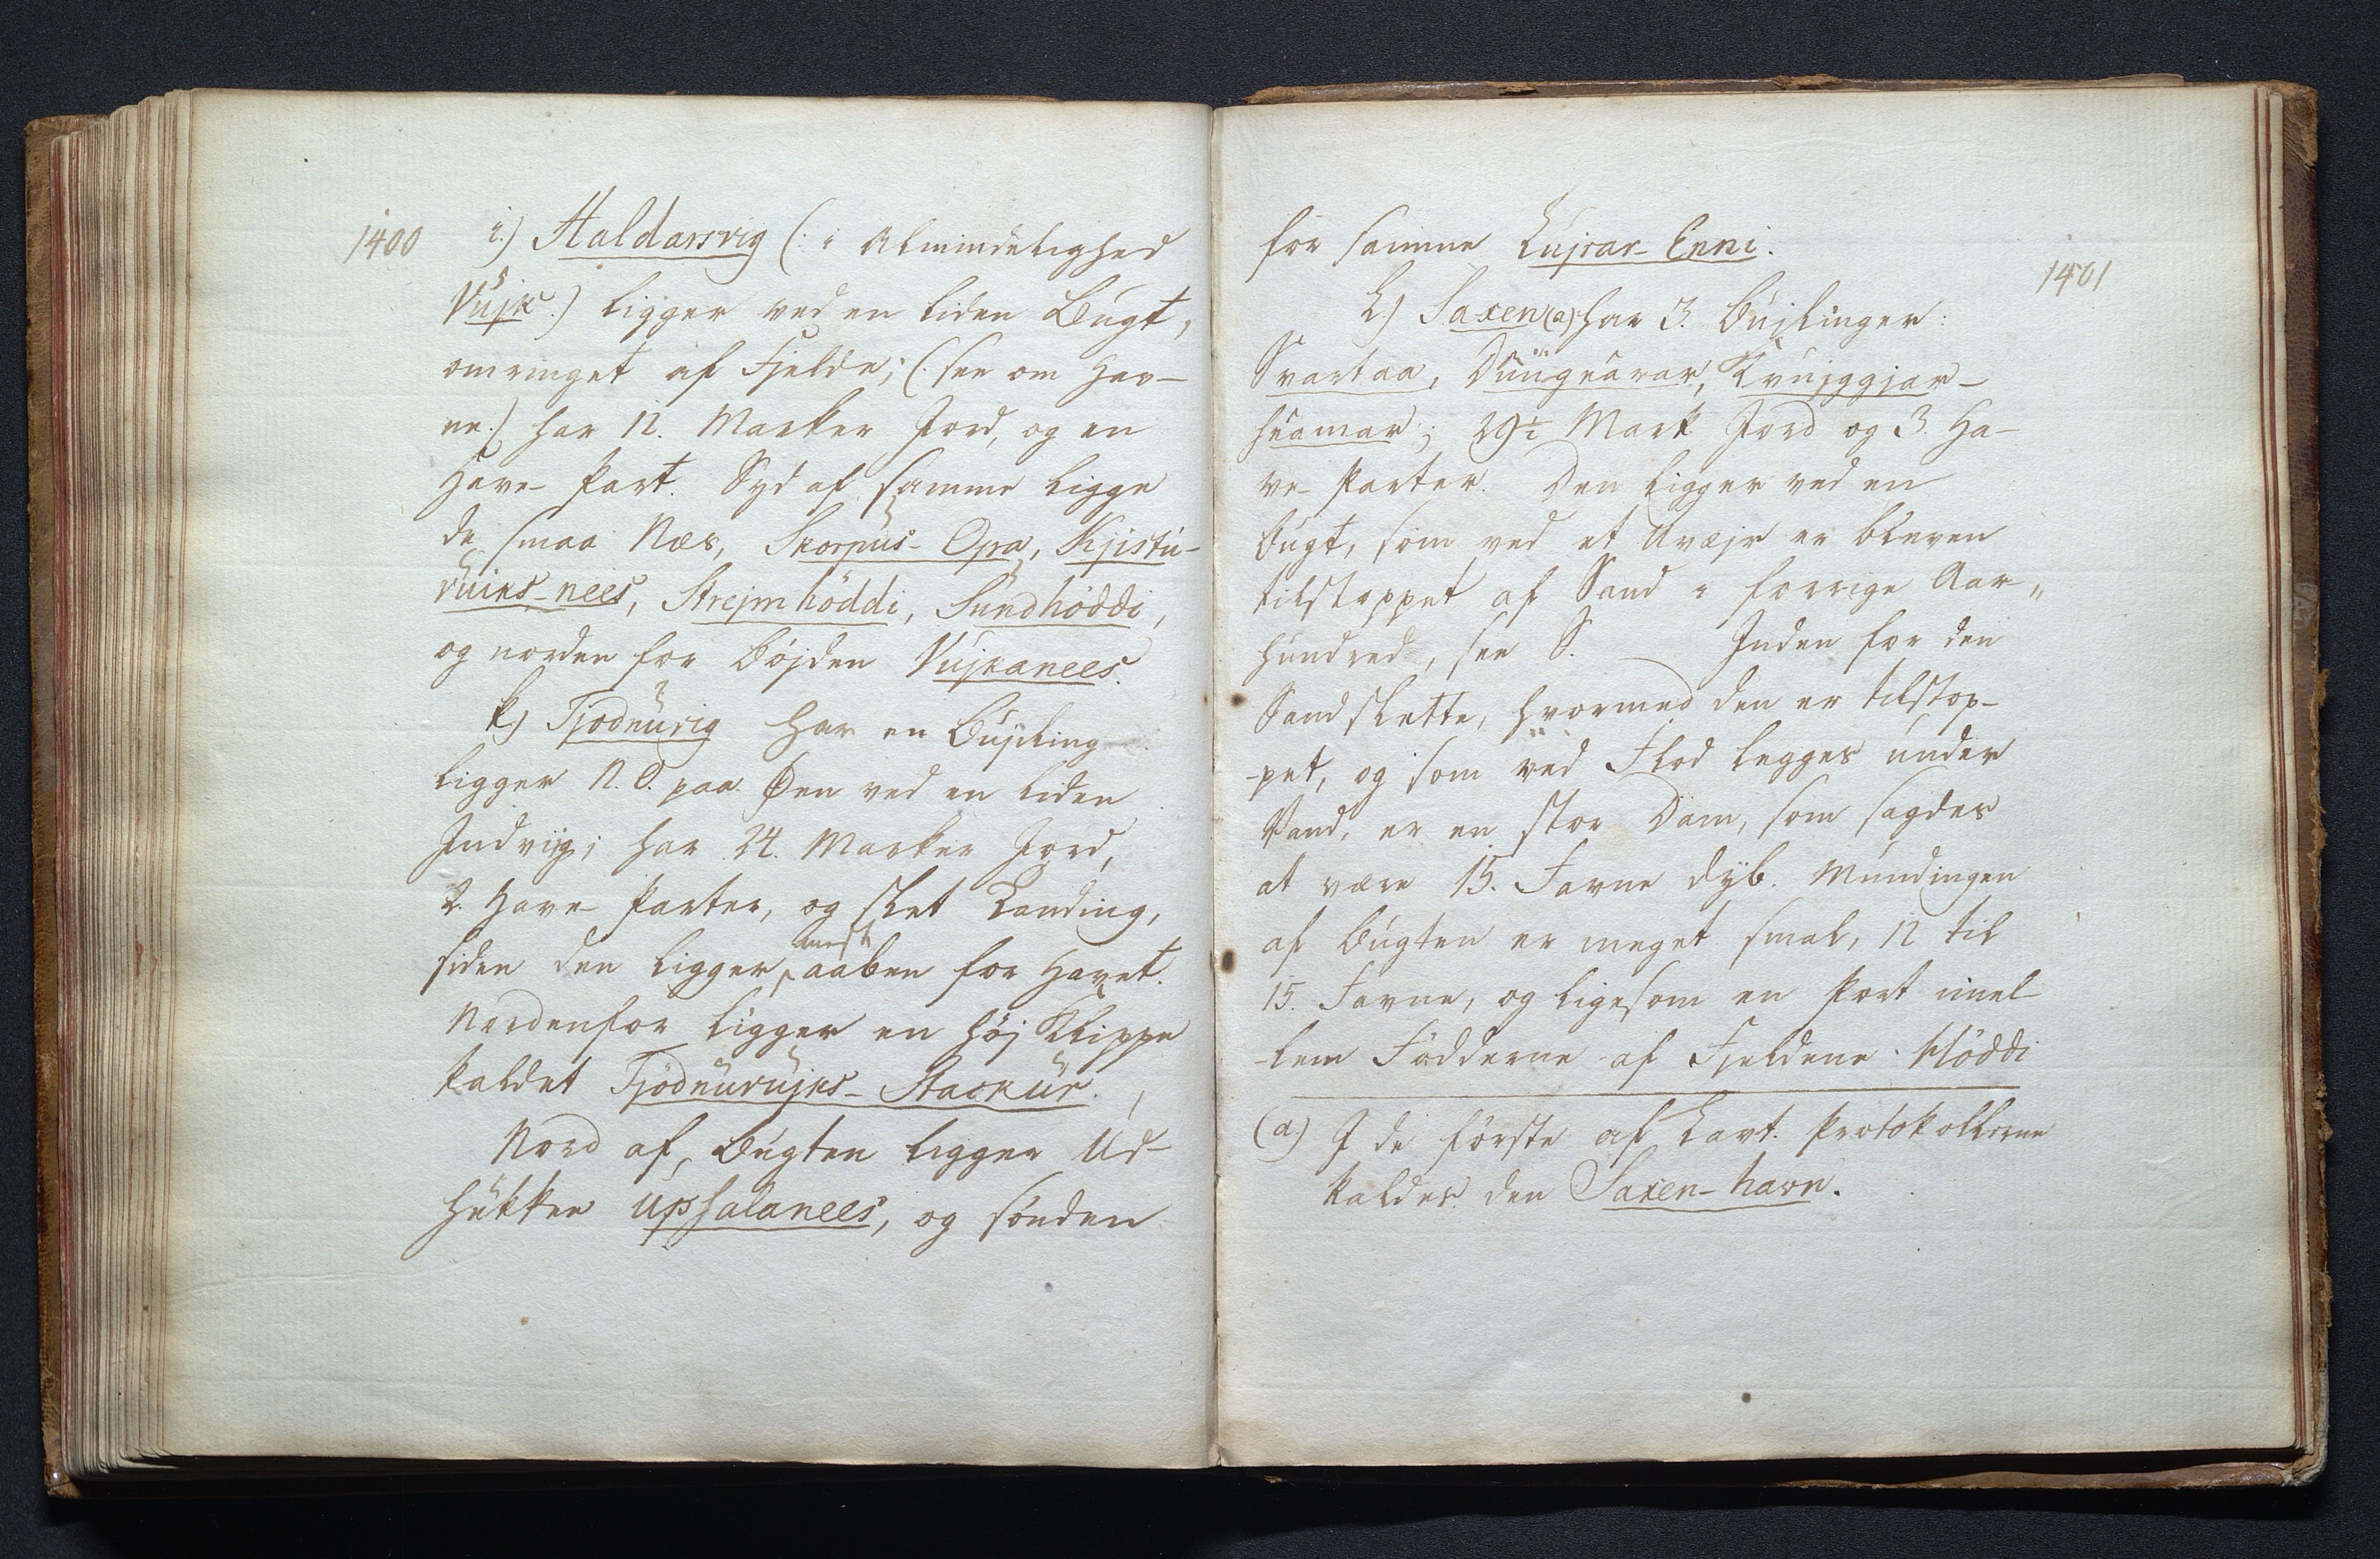 1400
i.) Haldarsvig (: i Almindelighed
Vujk:) ligger ved en liden Bugt,
omringet af Fjelde; (: see om Hav-
ne:) har 12. Marker Jord, og en
Have-Part. Syd af samme ligge
de smaa Næs, Skorpus-Opa, Kjistu-
vuiks-nees, Strejmhöddi, Sundhöddi,
og norden for Bøjden Vujkanees.
k.) Tjödnuvig har en Bujling
ligger N. O. paa Øen ved en liden
Indviig; har 24. Marker Jord,
2. Have-Parter, og slet Landing,
siden den ligger mest aaben for Havet.
Nordenfor ligger en høj Klippe
kaldet Tjödnuvujks-Stackur.
Nord af Bugten ligger Ud-
hukken upsalanees, og sönden
1401
for samme Lujrar-Enni.
L.) Saxen (a) har 3. Bujlinger:
Svartaa, Duugvarar, Kvujggjar-
hramar; 29½ Mark Jord og 3. Ha-
ve-Parter. Den ligger ved en
Bugt, som ved et Uvæjr er bleven
tilstoppet af Sand i forrige Aar„
hundred, see S. Inden for den
Sandslette, hvormed den er tilstop-
-pet, og som ved Flod legges under
Vand, er en stor Dam, som sagdes
at være 15. Favne dyb. Mundingen
af Bugten er meget smal, 12 til
15. Favne, og ligesom en Port imel-
-lem Födderne af Fjeldene Höddi
(a.) I de förste af Lavt. Protokollerne
kaldes den Saxen-havn.